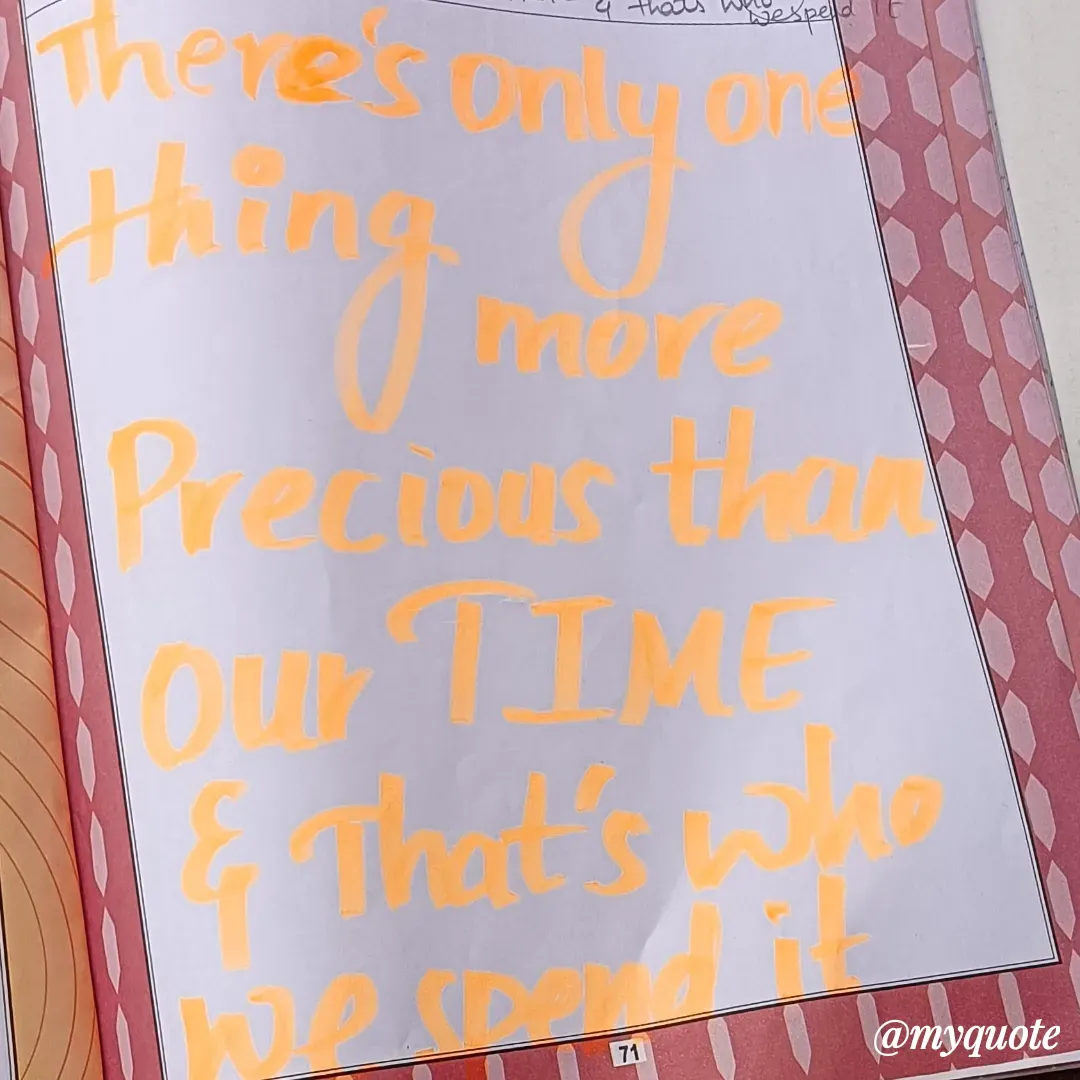 & that's who
we spend it
There's only one
thing
more
Precious than
our TIME
& That's who
we spend it
71
@myquote